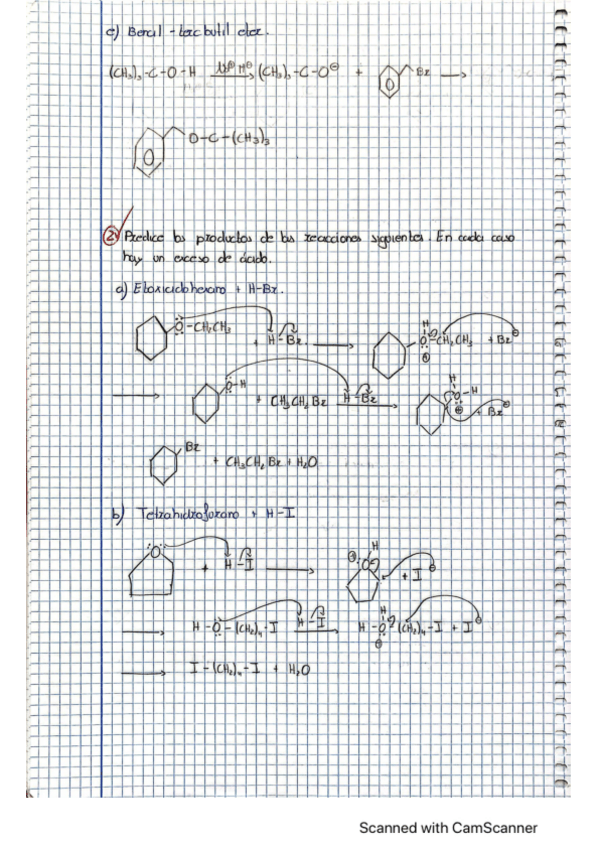 e) Bencil - tercbutil eter.
(CH₃)₃-C-O-H (CH₃)₃-C-O⊖ + Br
O-C-(CH₃)₃
② Predice los productos de las reacciones siguientes. En cada caso
hay un exceso de ácido.
a) Etoxiciclohexano + H-Br.
O-CH₂CH₃ + H-Br H O CH₂CH₃ + Br⊖
⊕
O-H + CH₃CH₂Br H-Br H O-H ⊕ + Br⊖
Br + CH₃CH₂Br + H₂O
b) Tetrahidrofurano + H-I
O + H-I ⊕ O H + I⊖
H-O-(CH₂)₄-I H-I H-O H (CH₂)₄-I + I⊖
⊕
I-(CH₂)₄-I + H₂O
Scanned with CamScanner